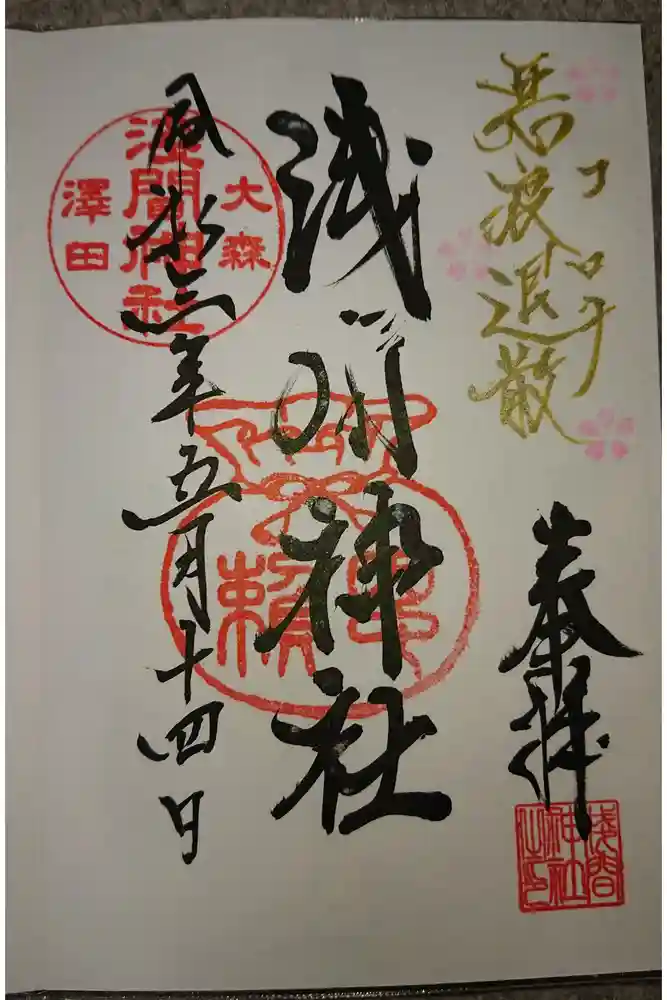 コロナ
悪疫退散
奉拝
浅間神社之印
浅間神社
令和三年五月十四日
大森
浅間神社
澤田